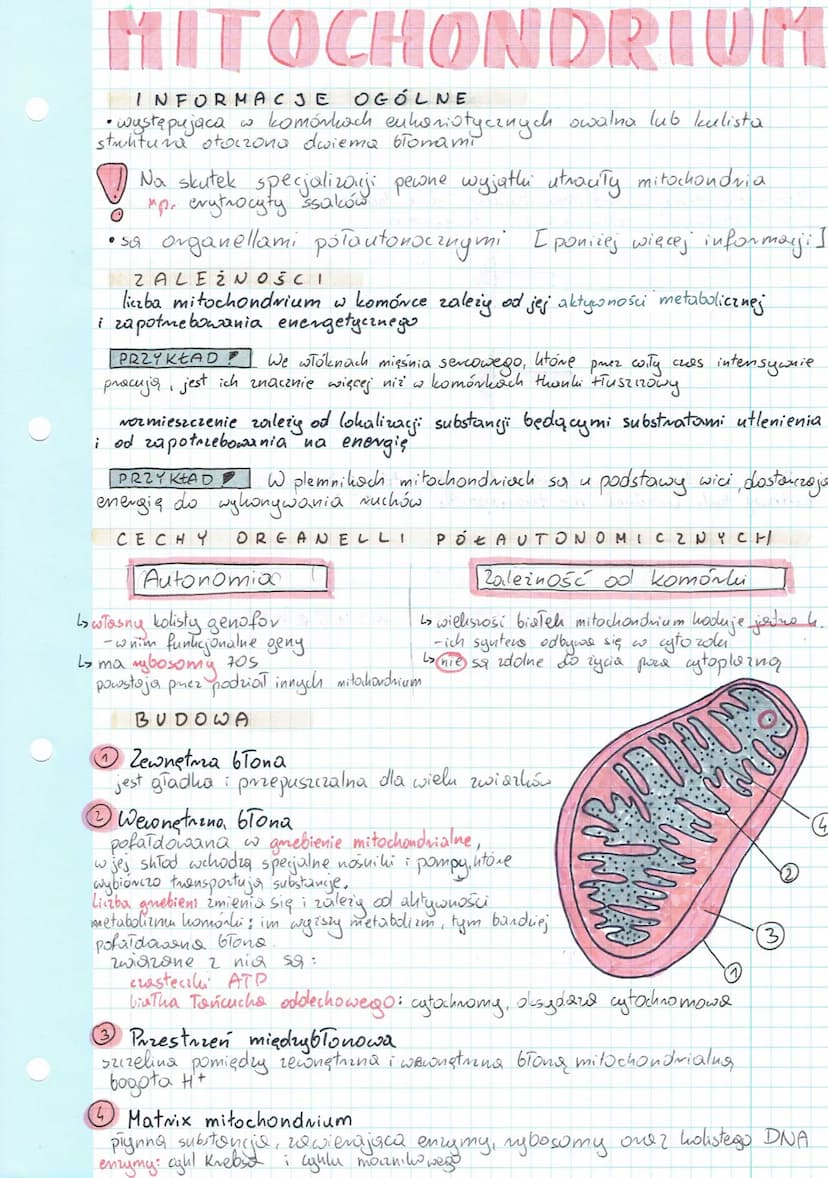 MITOCHONDRIUM
INFORMACJE OGÓLNE
• występująca w komórkach eukariotycznych owalna lub kulista
struktura otoczona dwiema błonami
! Na skutek specjalizacji pewne wyjątki utraciły mitochondria
np. erytrocyty ssaków
• są organellami półautonocznymi [poniżej więcej informacji]
ZALEŻNOŚCI
liczba mitochondrium w komórce zależy od jej aktywności metabolicznej
i zapotrzebowania energetycznego
PRZYKŁAD We włóknach mięśnia sercowego, które przez cały czas intensywnie
pracują, jest ich znacznie więcej niż w komórkach tkanki tłuszczowy
rozmieszczenie zależy od lokalizacji substancji będącymi substratami utlenienia
i od zapotrzebowania na energię
PRZYKŁAD W plemnikach mitochondriach są u podstawy wici, dostarczają
energię do wykonywania ruchów
CECHY ORGANELLI PÓŁAUTONOMICZNYCH
Autonomia
Zależność od komórki
↳ własny kolisty genofor
- w nim funkcjonalne geny
↳ ma rybosomy 70S
powstają przez podział innych mitochondrium
↳ większość białek mitochondrium koduje
- ich synteza odbywa się w cytozolu
↳ nie są zdolne do życia poza cytoplazmą
BUDOWA
1 Zewnętrza błona
jest gładka i przepuszczalna dla wielu związków
2 Wewnętrzna błona
pofałdowana w grzebienie mitochondrialne,
w jej skład wchodzą specjalne nośniki i pompy, które
wybiórczo transportują substancje.
Liczba grzebieni zmienia się i zależy od aktywności
metabolizmu komórki; im wyższy metabolizm, tym bardziej
pofałdowana błona.
związane z nią są:
cząsteczki ATP
białka łańcucha oddechowego: cytochromy, oksydaza cytochromowa
3 Przestrzeń międzybłonowa
szczelina pomiędzy zewnętrzną i wewnętrzną błoną mitochondrialną
bogata H+
4 Matrix mitochondrium
płynna substancja, zawierająca enzymy, rybosomy oraz kolistego DNA
enzymy: cykl Krebsa i cyklu mocznikowego
4
2
3
1